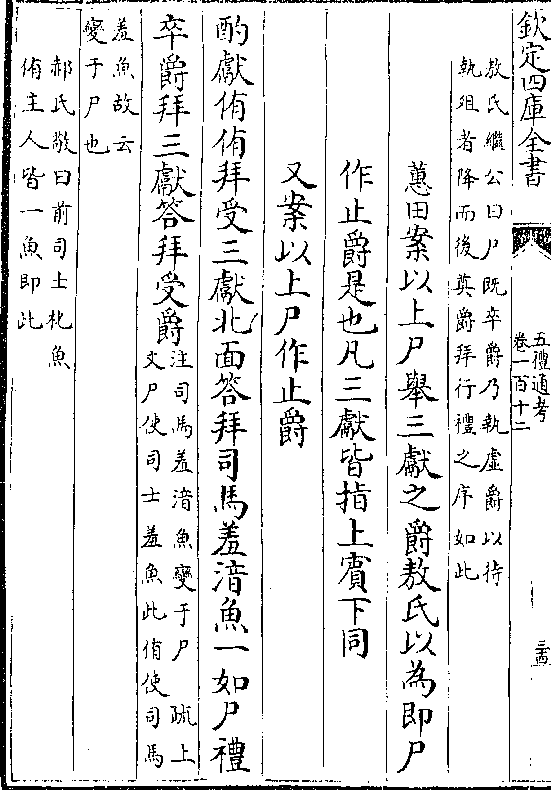 欽定四庫全書
五禮通考
卷一百十二
三四
敖氏繼公曰尸既卒爵乃執虛爵以待
執俎者降而後奠爵拜行禮之序如此
蕙田案以上尸舉三獻之爵敖氏以為即尸
作止爵是也凡三獻皆指上賓下同
又案以上尸作止爵
酌獻侑侑拜受三獻北面答拜司馬羞湆魚一如尸禮
卒爵拜三獻答拜受爵
注司馬羞湆魚變于尸 疏上
文尸使司士羞魚此侑使司馬
羞魚故云
變于尸也
郝氏敬曰前司士朼魚
侑主人皆一魚即此